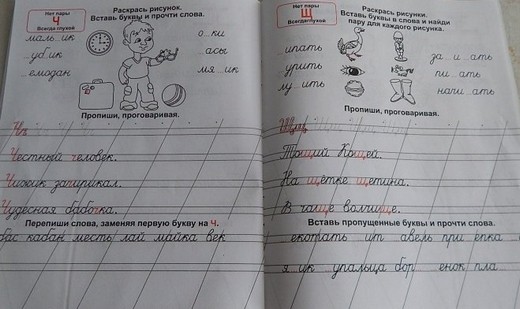 Нет пары
Ч
Всегда глухой
Раскрась рисунок.
Вставь буквы и прочти слова.
маль...ик
о...ки
...убик
...асы
...емодан
мя...ик
Пропиши, проговаривая.
Чч
Честный человек.
Чижик зачирикал.
Чудесная бабочка.
Перепиши слова, заменяя первую букву на Ч.
бас кабан месть лай майка век
Нет пары
Щ
Всегда глухой
Раскрась рисунки.
Вставь буквы в слова и найди
пару для каждого рисунка.
ипать
за...и...ать
урить
пи...ать
лу...ить
напи...ать
Пропиши, проговаривая.
Щщ
Тощий Кощей.
На щётке щетина.
В чаще волчище.
Вставь пропущенные буквы и прочти слова.
екотать ит авель при епка
я ик упальца бор енок пла